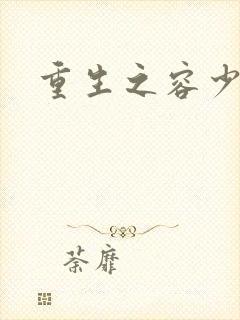 重生之容少
荼靡